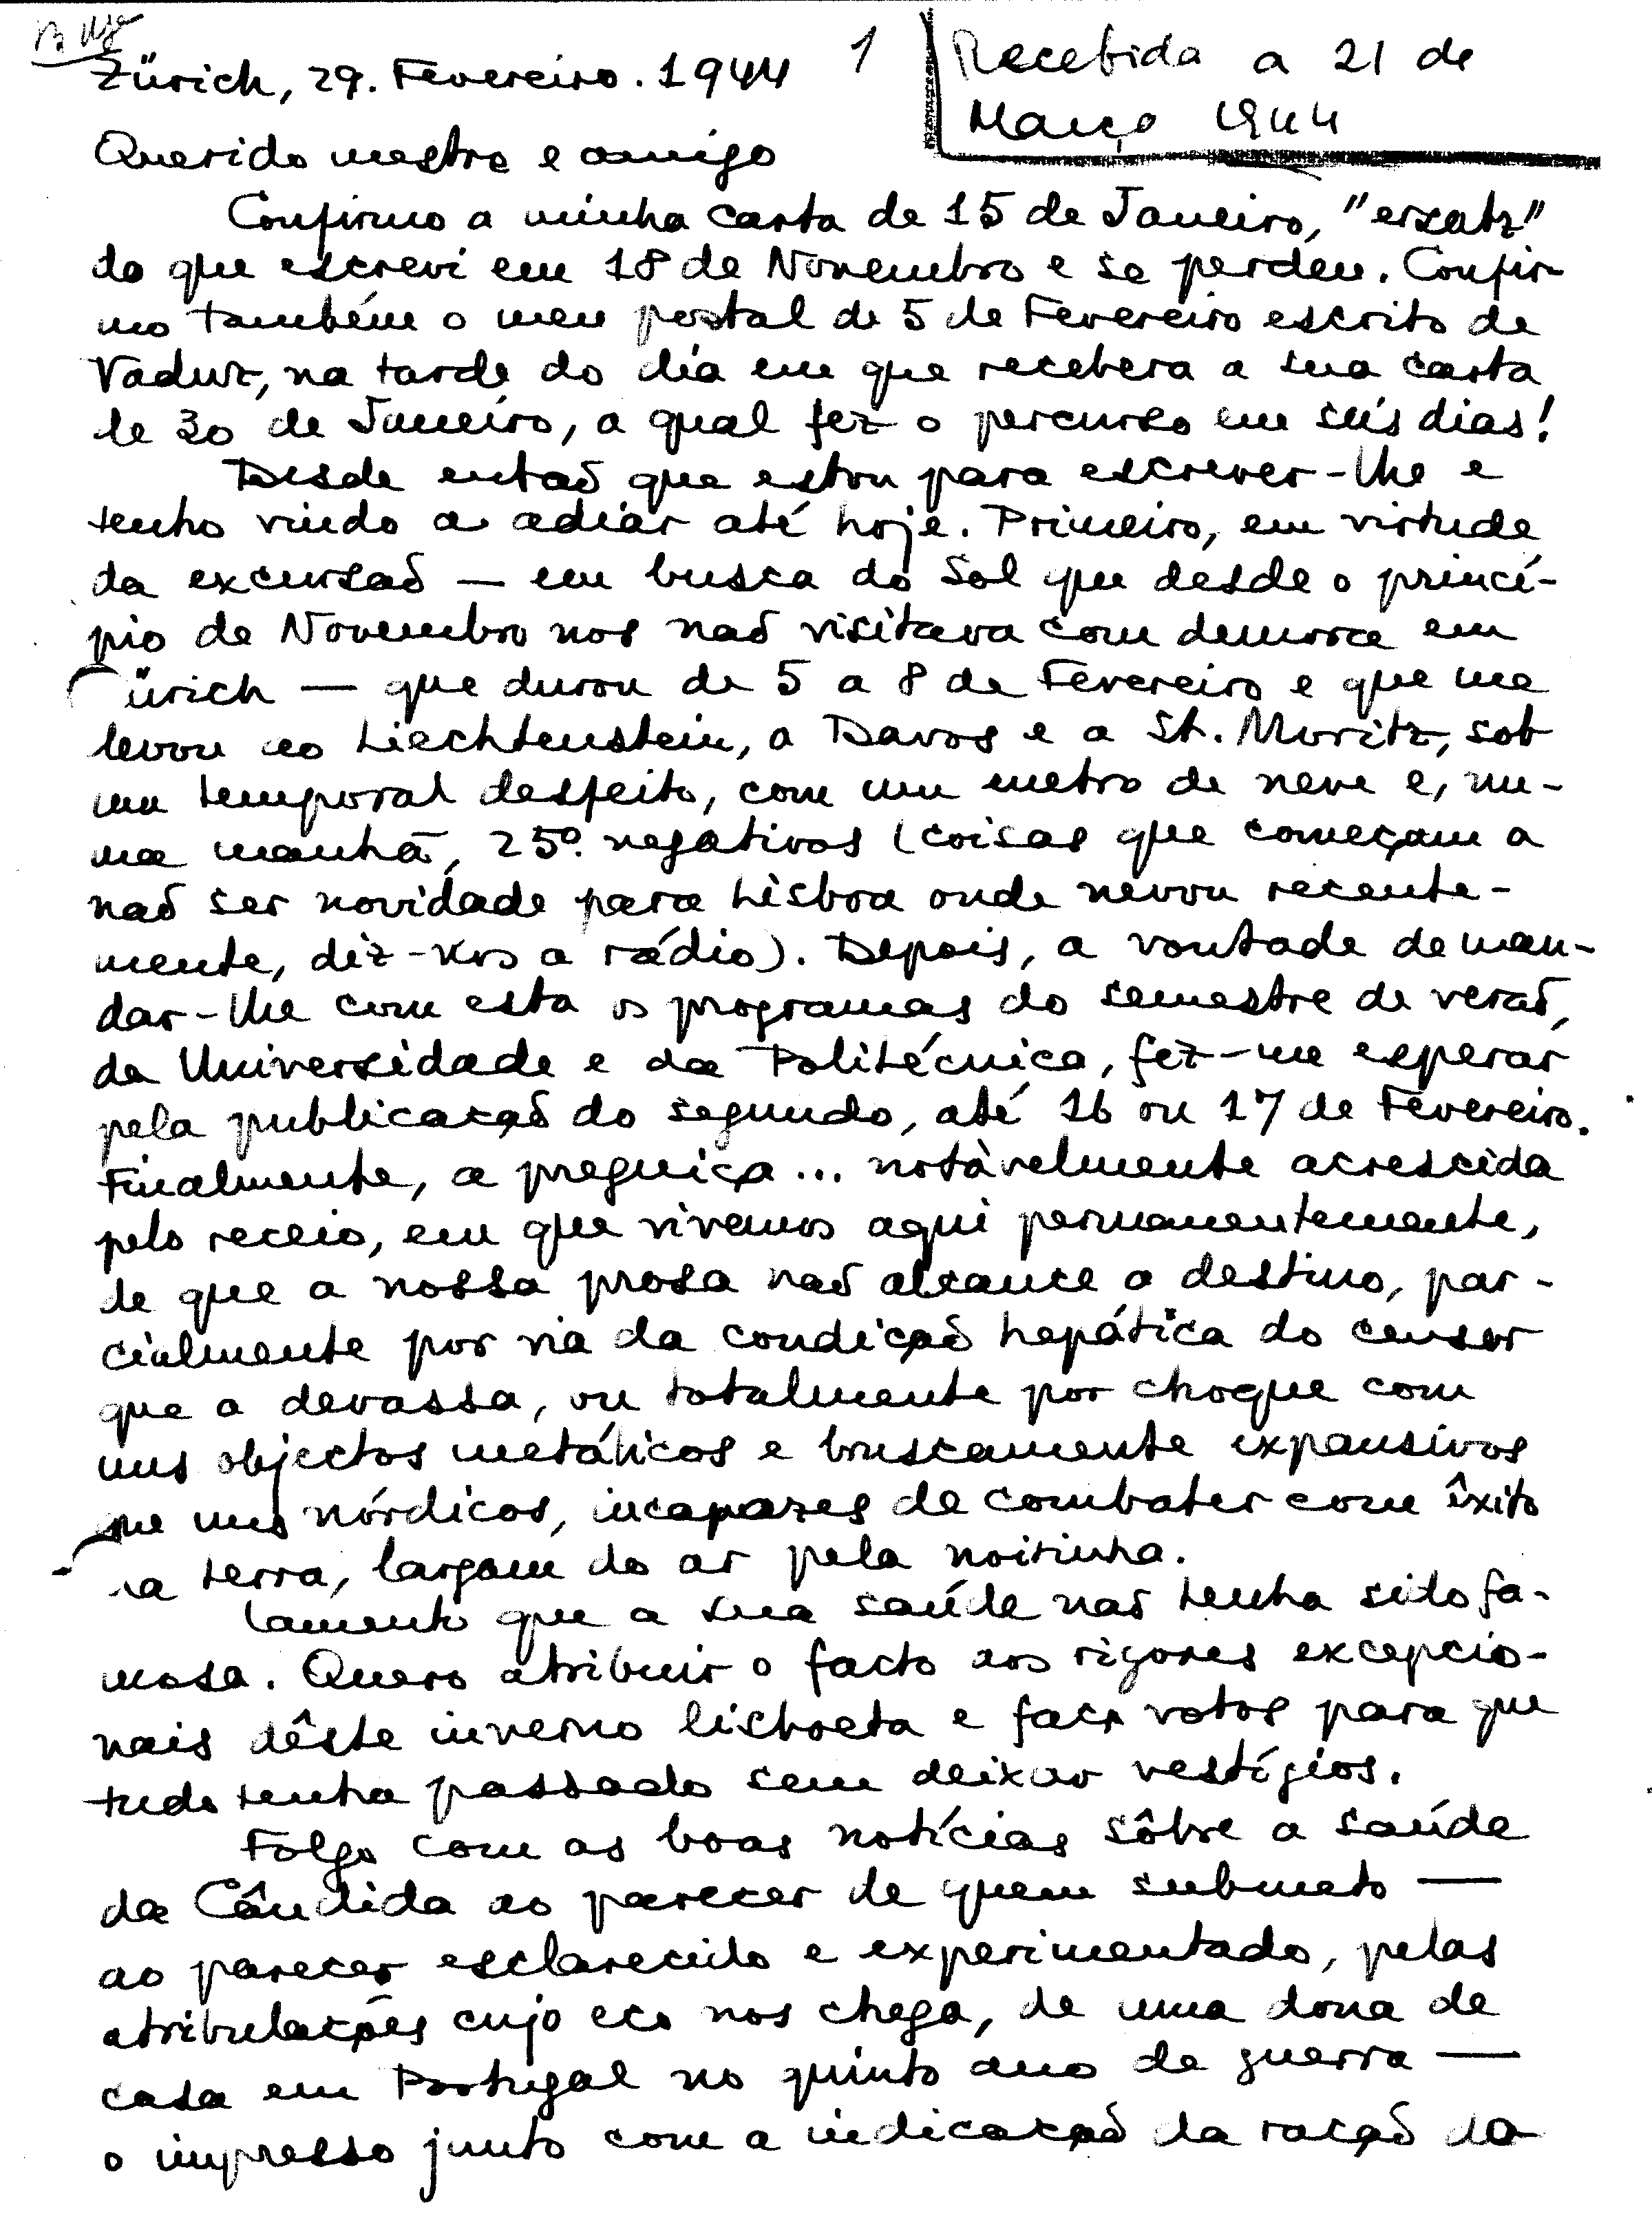 Zürich, 29. Fevereiro. 1944
1
Recebida a 21 de
Março 1944
Querido mestre e amigo
Confirmo a minha carta de 15 de Janeiro, "ersatz"
do que escrevi em 18 de Novembro e se perdeu. Confir-
mo também o meu postal de 5 de Fevereiro escrito de
Vaduz, na tarde do dia em que recebera a sua carta
de 30 de Janeiro, a qual fez o percurso em seis dias!
Desde então que estou para escrever-lhe e
tenho vindo a adiar até hoje. Primeiro, em virtude
da excursão — em busca do Sol que desde o princí-
pio de Novembro nos não visitava com demora em
Zürich — que durou de 5 a 8 de Fevereiro e que me
levou ao Liechtenstein, a Davos e a St. Moritz, sob
um temporal desfeito, com um metro de neve e, nu-
ma manhã, 25º. negativos (coisas que começam a
não ser novidade para Lisboa onde nevou recente-
mente, diz-nos a rádio). Depois, a vontade de man-
dar-lhe com esta os programas do semestre de verão,
da Universidade e da Politécnica, fez-me esperar
pela publicação do segundo, até 16 ou 17 de Fevereiro.
Finalmente, a preguiça... notàvelmente acrescida
pelo receio, em que vivemos aqui permanentemente,
de que a nossa prosa não alcance o destino, par-
cialmente por via da condição hepática do censor
que a devassa, ou totalmente por choque com
uns objectos metálicos e bruscamente expansivos
que uns nórdicos, incapazes de combater com êxito
na terra, largam do ar pela noitinha.
Lamento que a sua saúde não tenha sido fa-
mosa. Quero atribuir o facto aos rigores excepcio-
nais dêste inverno lisboeta e faço votos para que
tudo tenha passado sem deixar vestígios.
Folgo com as boas notícias sôbre a saúde
da Cândida ao parecer de quem submeto —
ao parecer esclarecido e experimentado, pelas
atribulações cujo eco nos chega, de uma dona de
casa em Portugal no quinto ano de guerra —
o impresso junto com a indicação da ração do